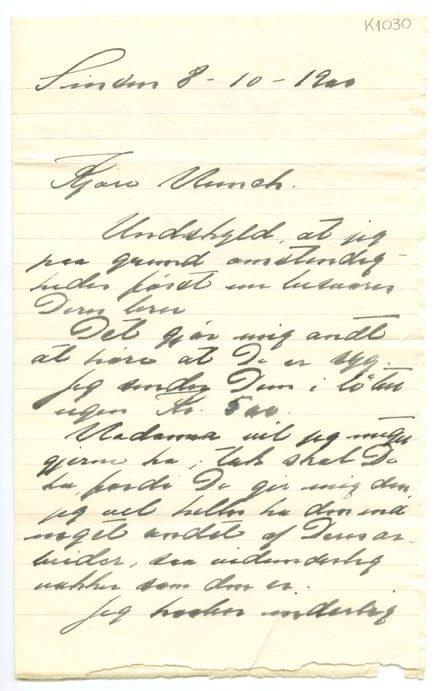 K1030
8 - 10 - 1900
Kjære Munch.
Undskyld, at jeg
paa grund omstendig-
heder først nu besvarer
Deres brev
Det gjør mig ondt
at høre at De er syg.
Jeg sender Dem i løbet
ugen Kr. 500.
Madonna vil jeg meget
gjerne ha, tak skal De
ha, fordi De gir mig den,
jeg vil heller ha den end
noget andet af Deres ar-
beider, saa vidunderlig
vakker som den er.
Jeg haaber inderlig